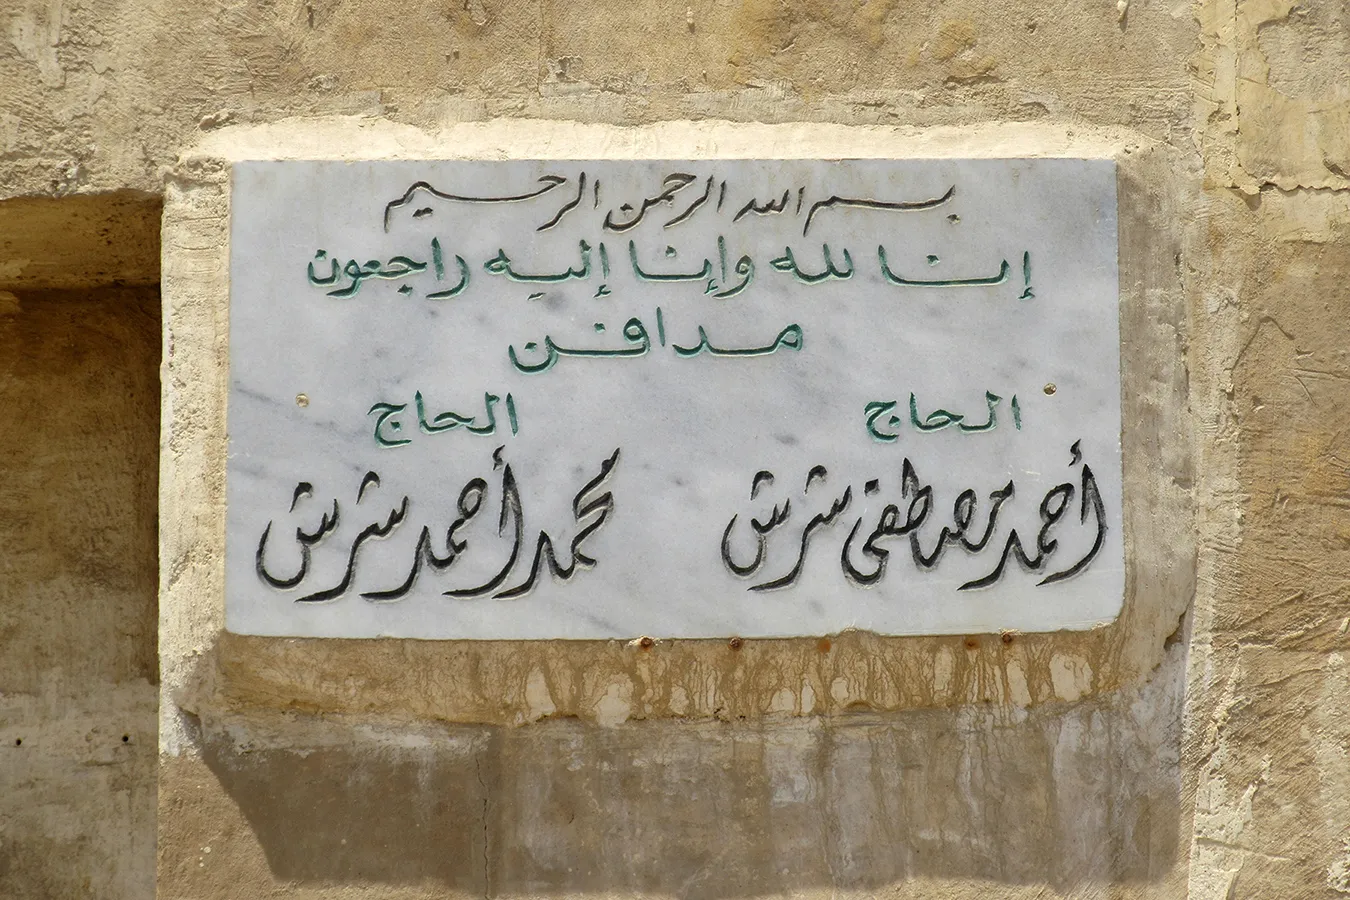 بسم الله الرحمن الرحيم
إنا لله وإنا إليه راجعون
مدافن
الحاج الحاج
أحمد مصطفى شرش محمد أحمد شرش